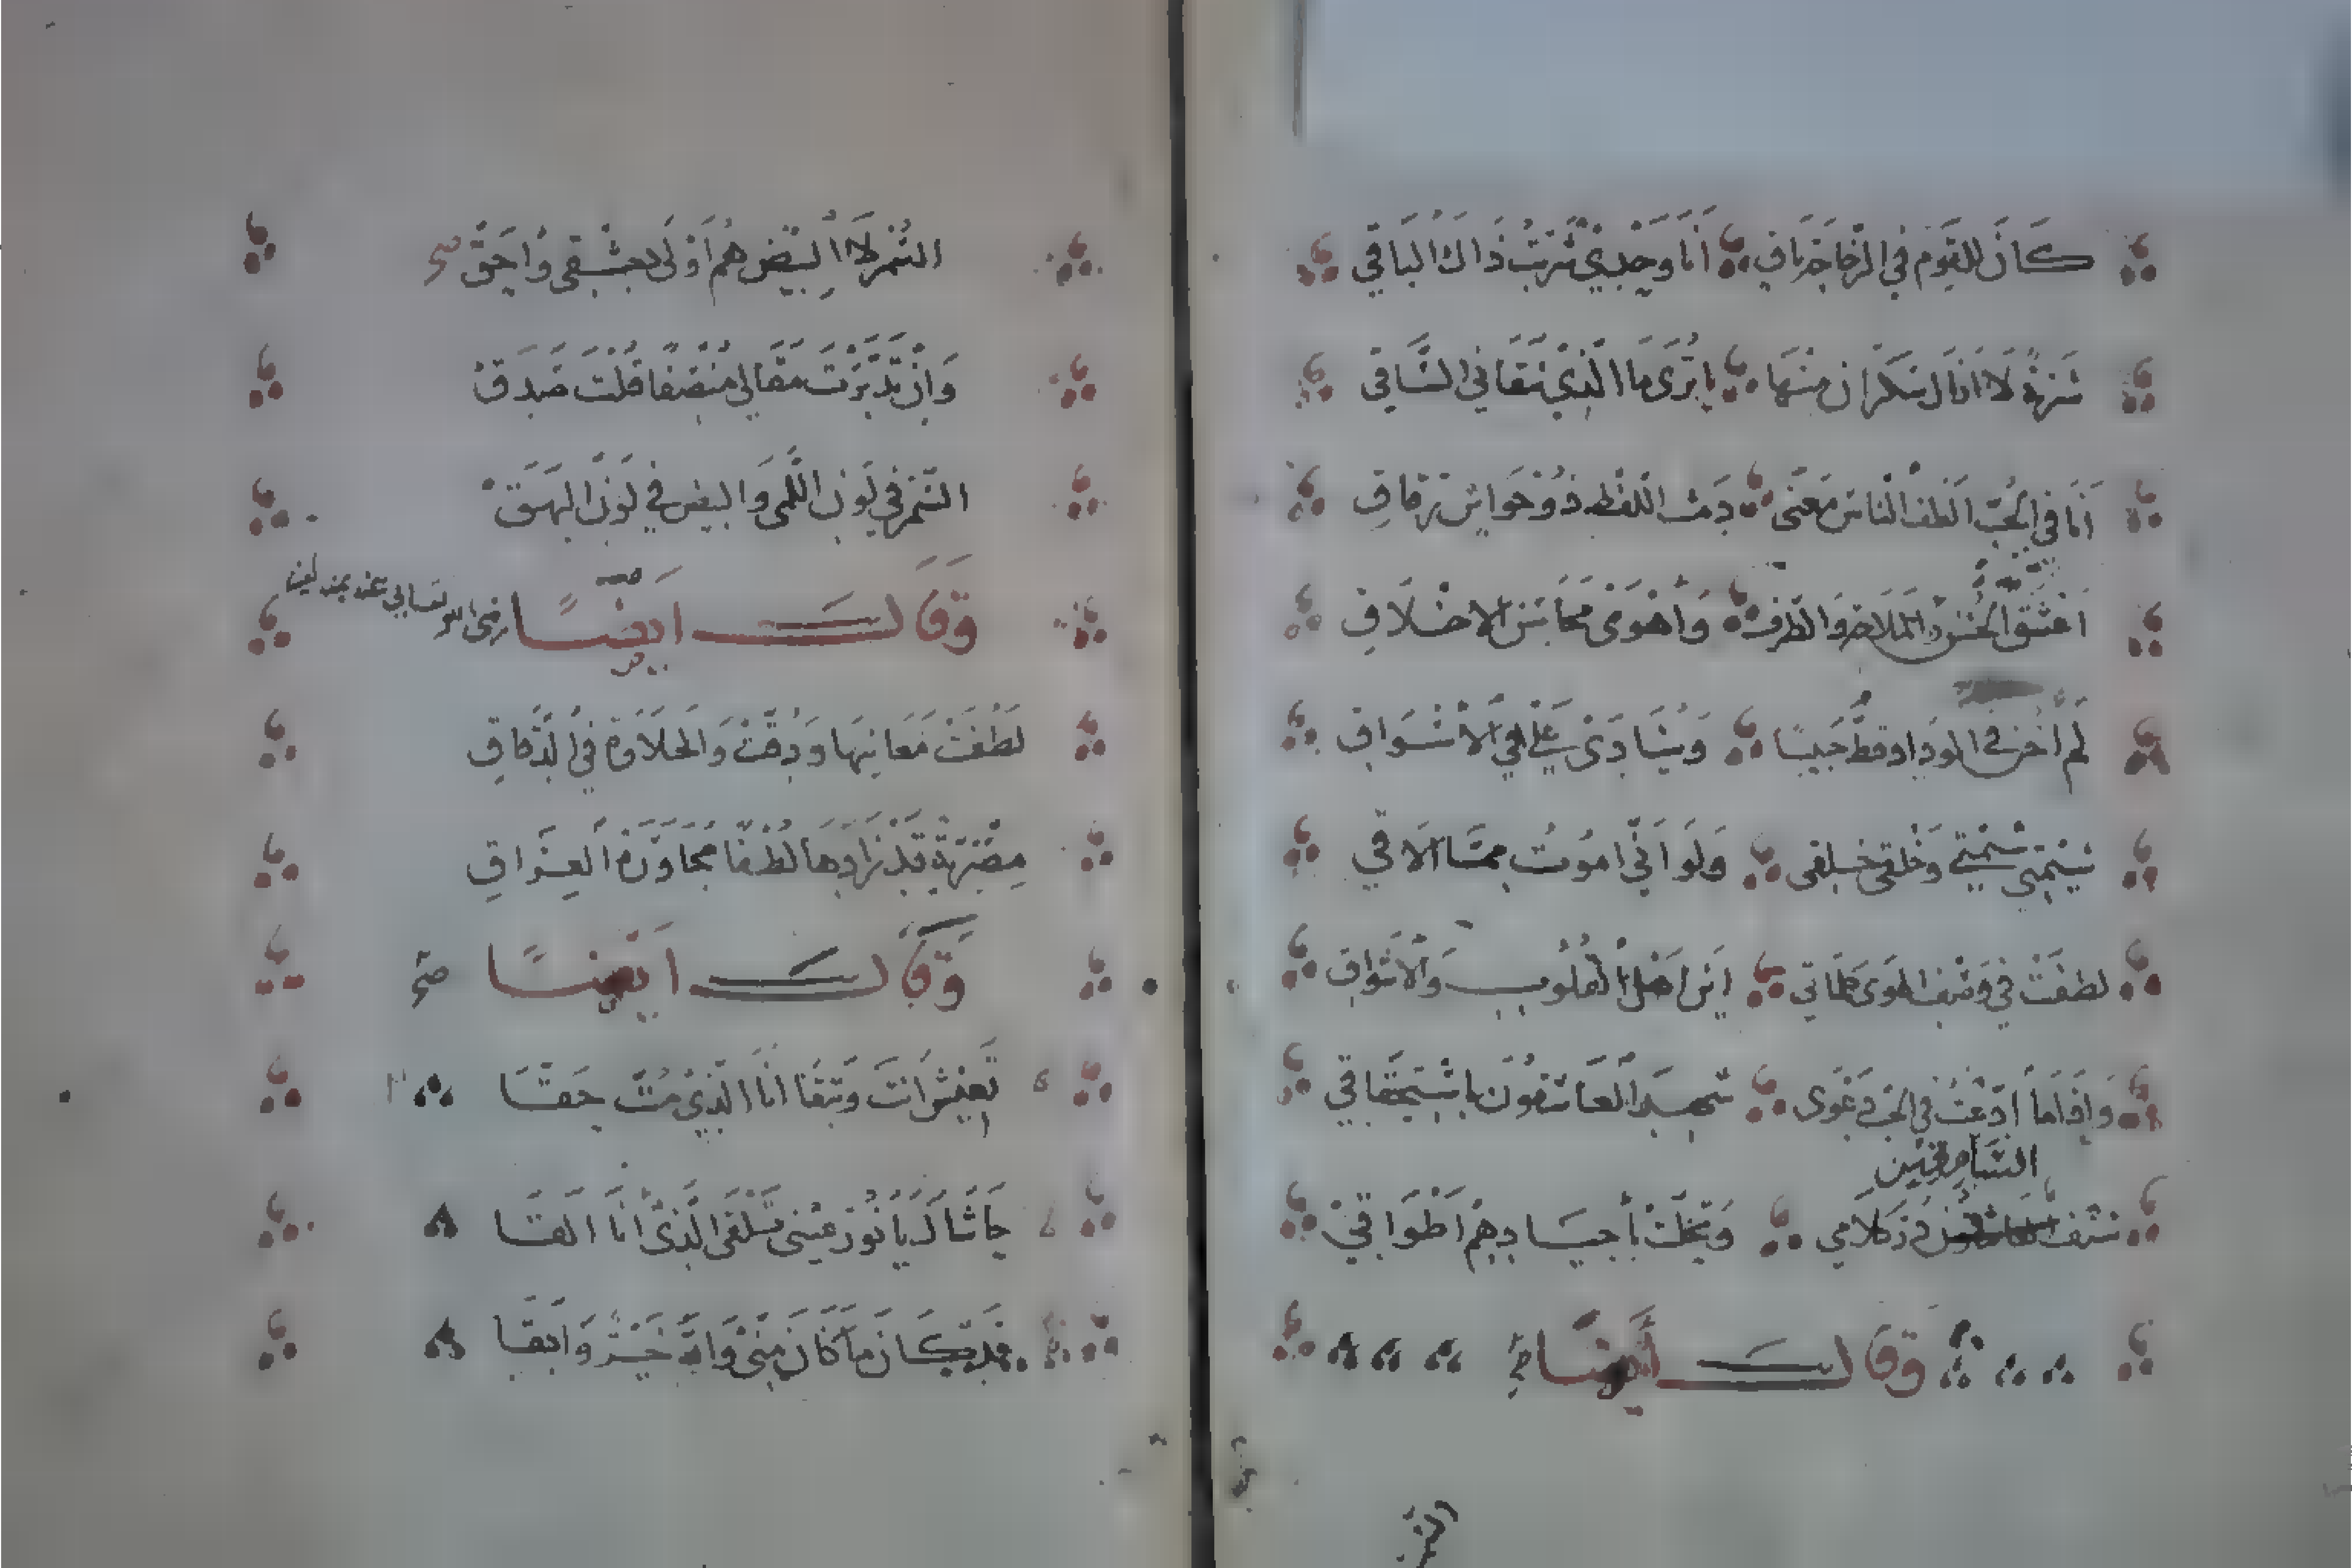 كَانَ للقَوْمِ في الزُّجَاجَةِ بَاقٍ أَنَا وَحْدِيْ شَرِبْتُ ذَاكَ البَاقِي
شَرْبَةً لَا أَزَالُ سَكْرَانَ مِنْهَا
أَنَا فِي الحُبِّ أَلْطَفُ النَّاسِ مَعْنًى دَمِثُ اللَّفْظِ ذُوْ حَوَاشٍ رِقَاقِ
أَعْشَقُ الحُسْنَ وَالمَلَاحَةَ وَالظَّرْفَ وَأَهْوَى مَحَاسِنَ الاخْلَاقِ
لَمْ أَخُنْ فِي الودَادِ قطُّ حَبِيبًا وَيُنَادَى عَلَيَّ فِي الأَسْوَاقِ
شِيْمَتِي شِيْمَتِي وَخُلْقِي خُلْقِي وَلَوْ أَنِّي امُوْتُ مِمَّا أُلَاقِي
لطفَتْ فِي وَصْفِ الهَوَى كلمَاتِي أَيْنَ أَهْلُ القُلُوبِ وَالأَشْوَاقِ
وَإِذَا مَا ادَّعَيْتُ فِي الحُبِّ دَعْوَى شَهِدَ العَاشِقُوْنَ بِاسْتِحْقَاقِي
السَّامِعِيْنَ
شَنَّفَ دُرُّ كَلَامِي وَتَحَلَّتْ بأَجْيَادِهِمْ أَطْوَاقِيْ
وَقَالَ أَيْضًا
السُّمْرُ لَا البِيْضُ هُمُ أَوْلَى بعِشْقِي وَأَحَقّْ صح
وَإِنْ تَدَبَّرْتَ مَقَالِي مُنْصِفًا قُلْتَ صَدَقْ
السُّمْرُ فِي لَوْنِ اللَّمَى وَالبِيضُ فِي لَوْنِ البَهَقْ
وَقَالَ أَيضًا
لَطُفَتْ مَعَانِيهَا وَدَقَّتْ وَالحَلَاوَةُ فِي الدِّقَاقِ
مِصْرِيَّةٌ قَدْ زَادَهَا لُطْفًا مُجَاوَرَةُ العِرَاقِ
وَقَالَ أَيْضًا صح
تَعِيْشُ أَنْتَ وَتَبْقَا أَنَا الَّذِي مُتُّ حَقَّا
حَاشَاكَ يَا نُوْرَ عَيْنِي تَلْقَى الَّذِيْ أَنَا أَلْقَا
قَدْ كَانَ مَا كَانَ مِنِّيْ وَاللهُ خَيْرٌ وَأَبْقَا